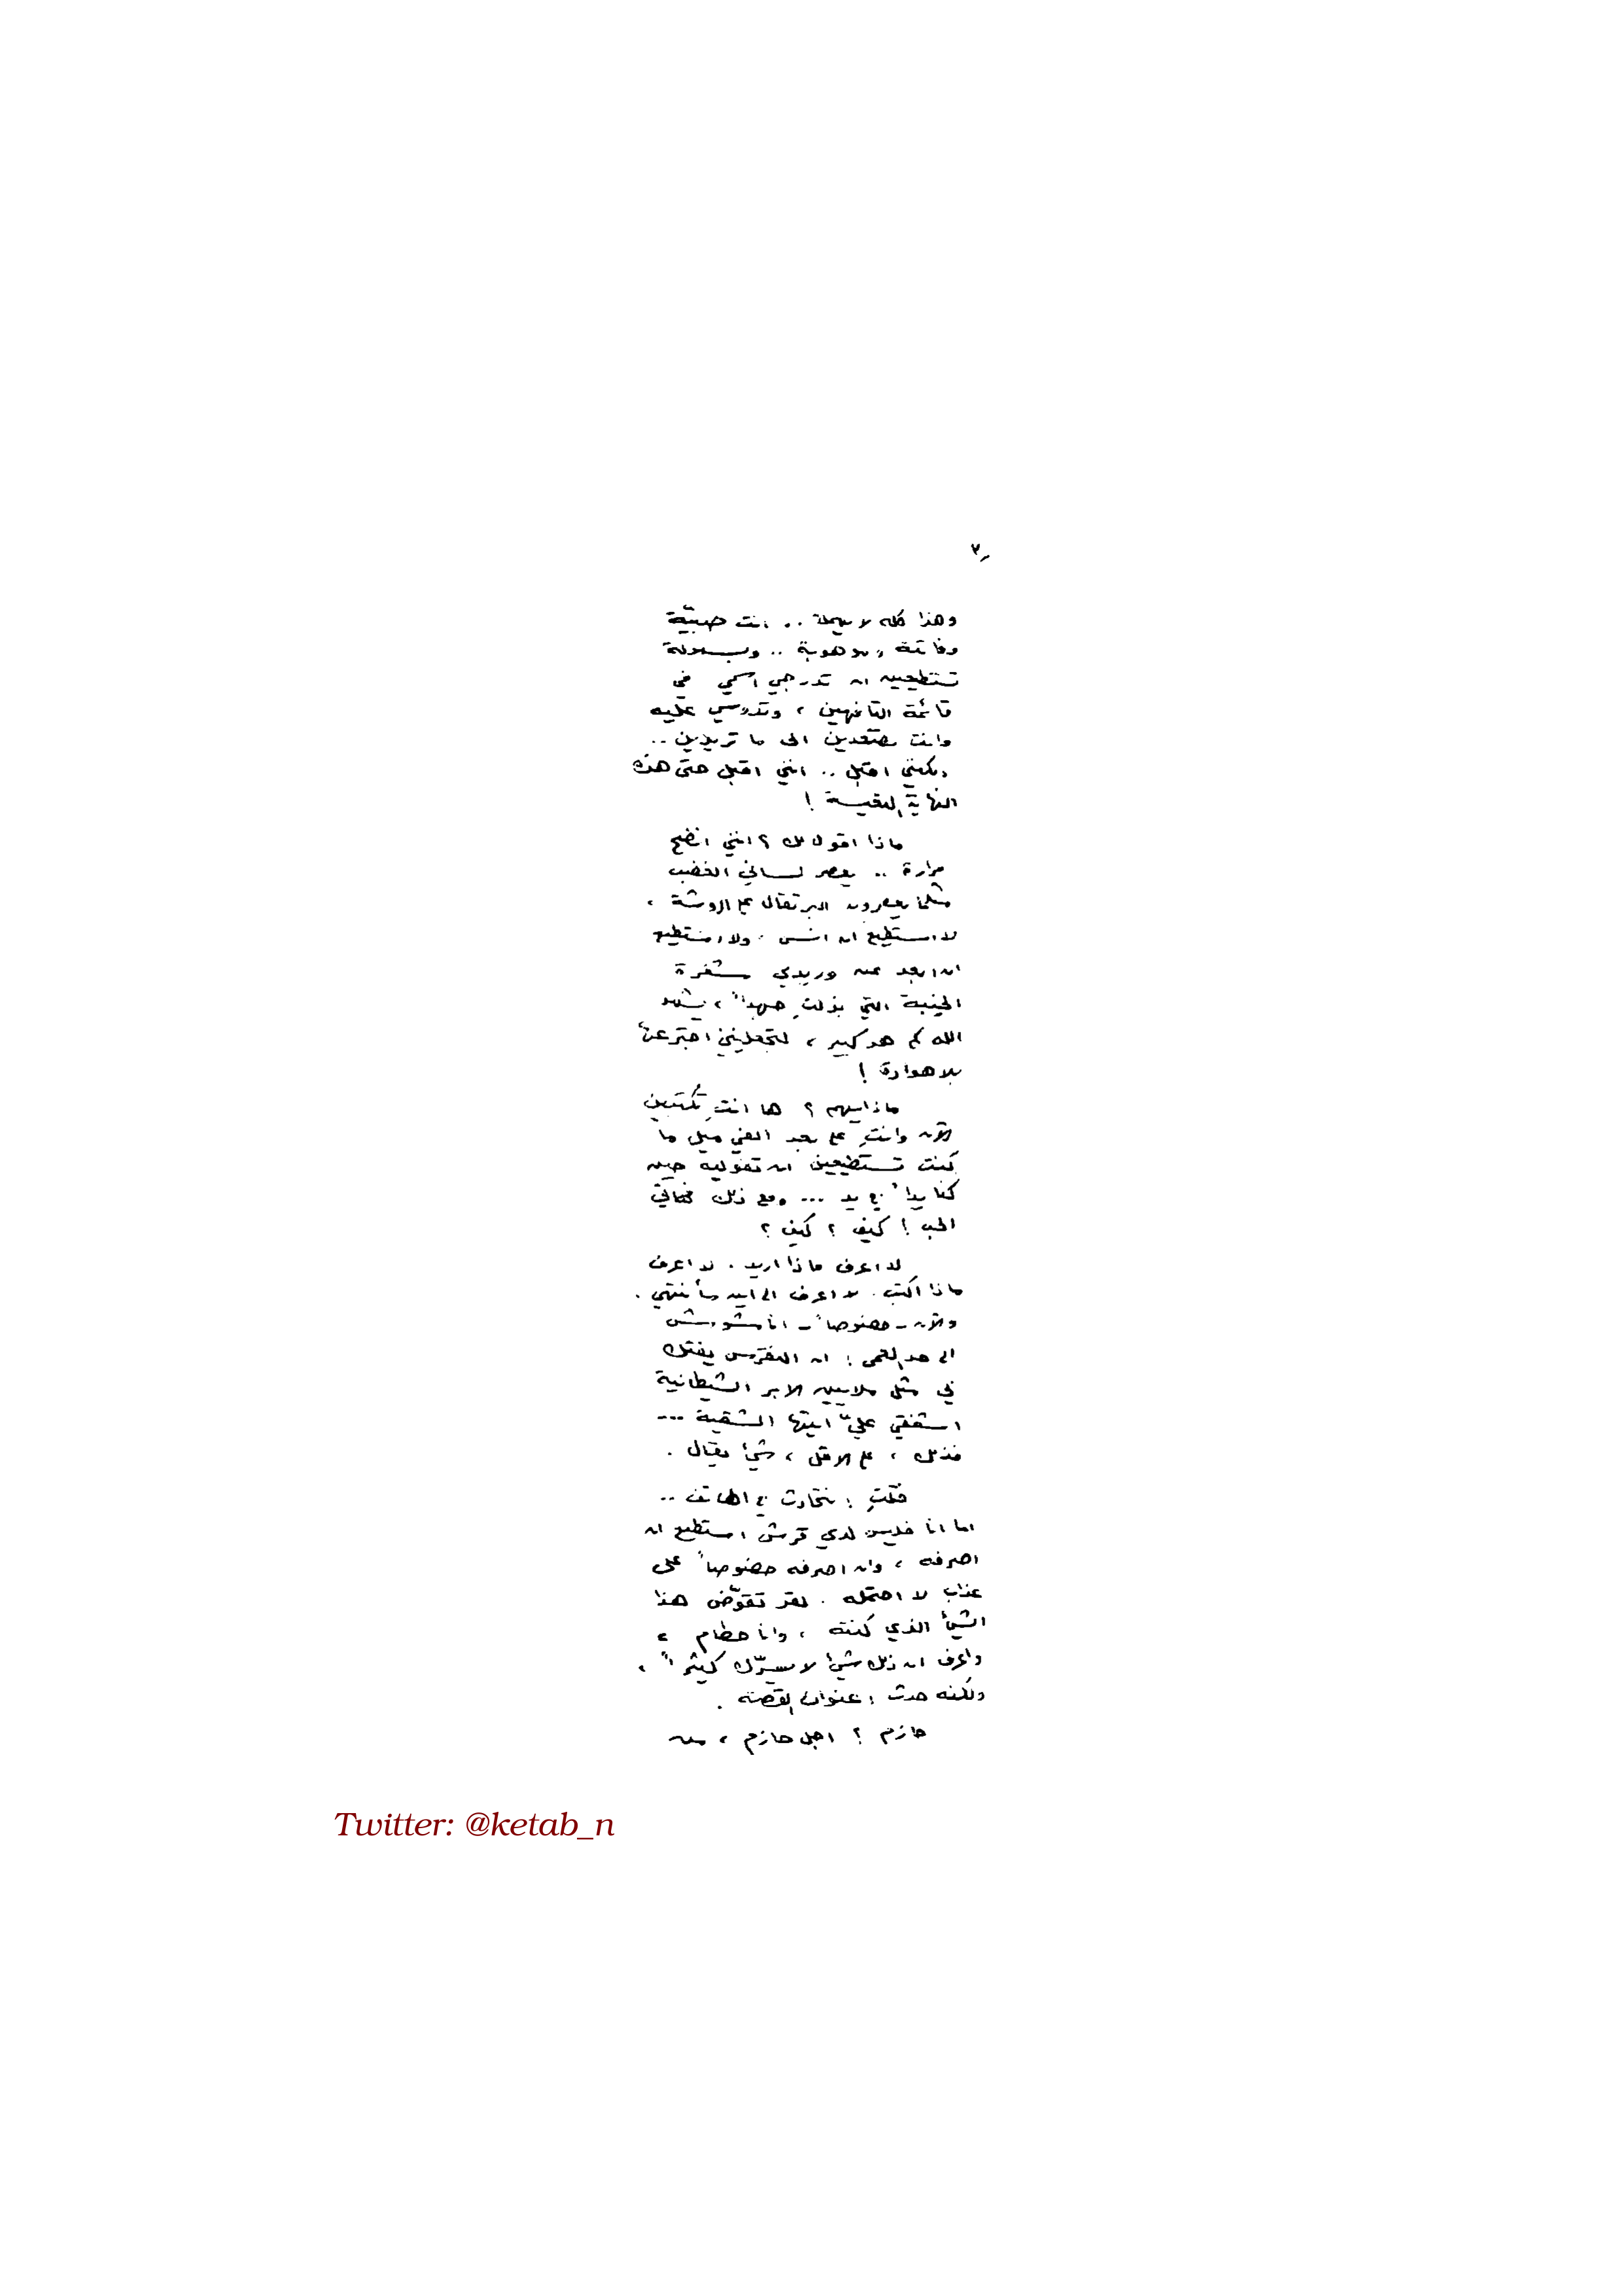 ٣-
وهذا كله لا يهمك .. انت صبيّة
وفاتنة وموهوبة .. وبسهولة
تستطيعين ان تدرجي اسمي في
قائمة التافهين ، وتدوسي عليه
وانت تصعدين الى ما تريدين ..
ولكنني اقبل .. انني اقبل حتى هذه
النهاية التعيسة !
ماذا اقول لك ؟ انني انضح
مرارة .. يعصر لساني الغضب
مثلما يعصرون البرتقال على الروشة ،
لا استطيع ان انسى . ولا استطيع
ان ابعد عن وريدي شفرة
الخيبة التي بذلتِ جهداً ، يشهد
الله كم هو كبير ، لتجعلينني اجترعها
بلا هوادة !
ماذا يهم ؟ ها انتِ تكتبين
الآن وانتِ على بعد الفي ميل ما
كنت تستطيعين ان تقوليه حين
كنا يداً بيد ... ومع ذلك
الحب ! كيف ؟ كيف ؟
لا اعرف ماذا اريد . لا اعرف
ماذا اكتب . لا اعرف الى اين سأنتهي .
والآن - خصوصاً - انا مشوش
الى حد العمى : ان النقرس يفتك
بي مثل ملايين الابر الشيطانية
اشفقي عليّ ايتها الشقية ...
فذلك ، على الاقل ، شيء يقال .
قلتِ : نتحادث في الهاتف ..
اما انا فليس لدي قرش استطيع ان
اصرفه ، وان اصرفه خصوصاً على
عذاب لا احتمله . لقد تقوّض هذا
الشيء الذي كنته ، وانا حطام ،
واعرف ان ذلك شيء لا يسرّك كثيراً ،
ولكنه حدث : عنوان القصة .
حازم ؟ اجل حازم ، من
Twitter: @ketab_n